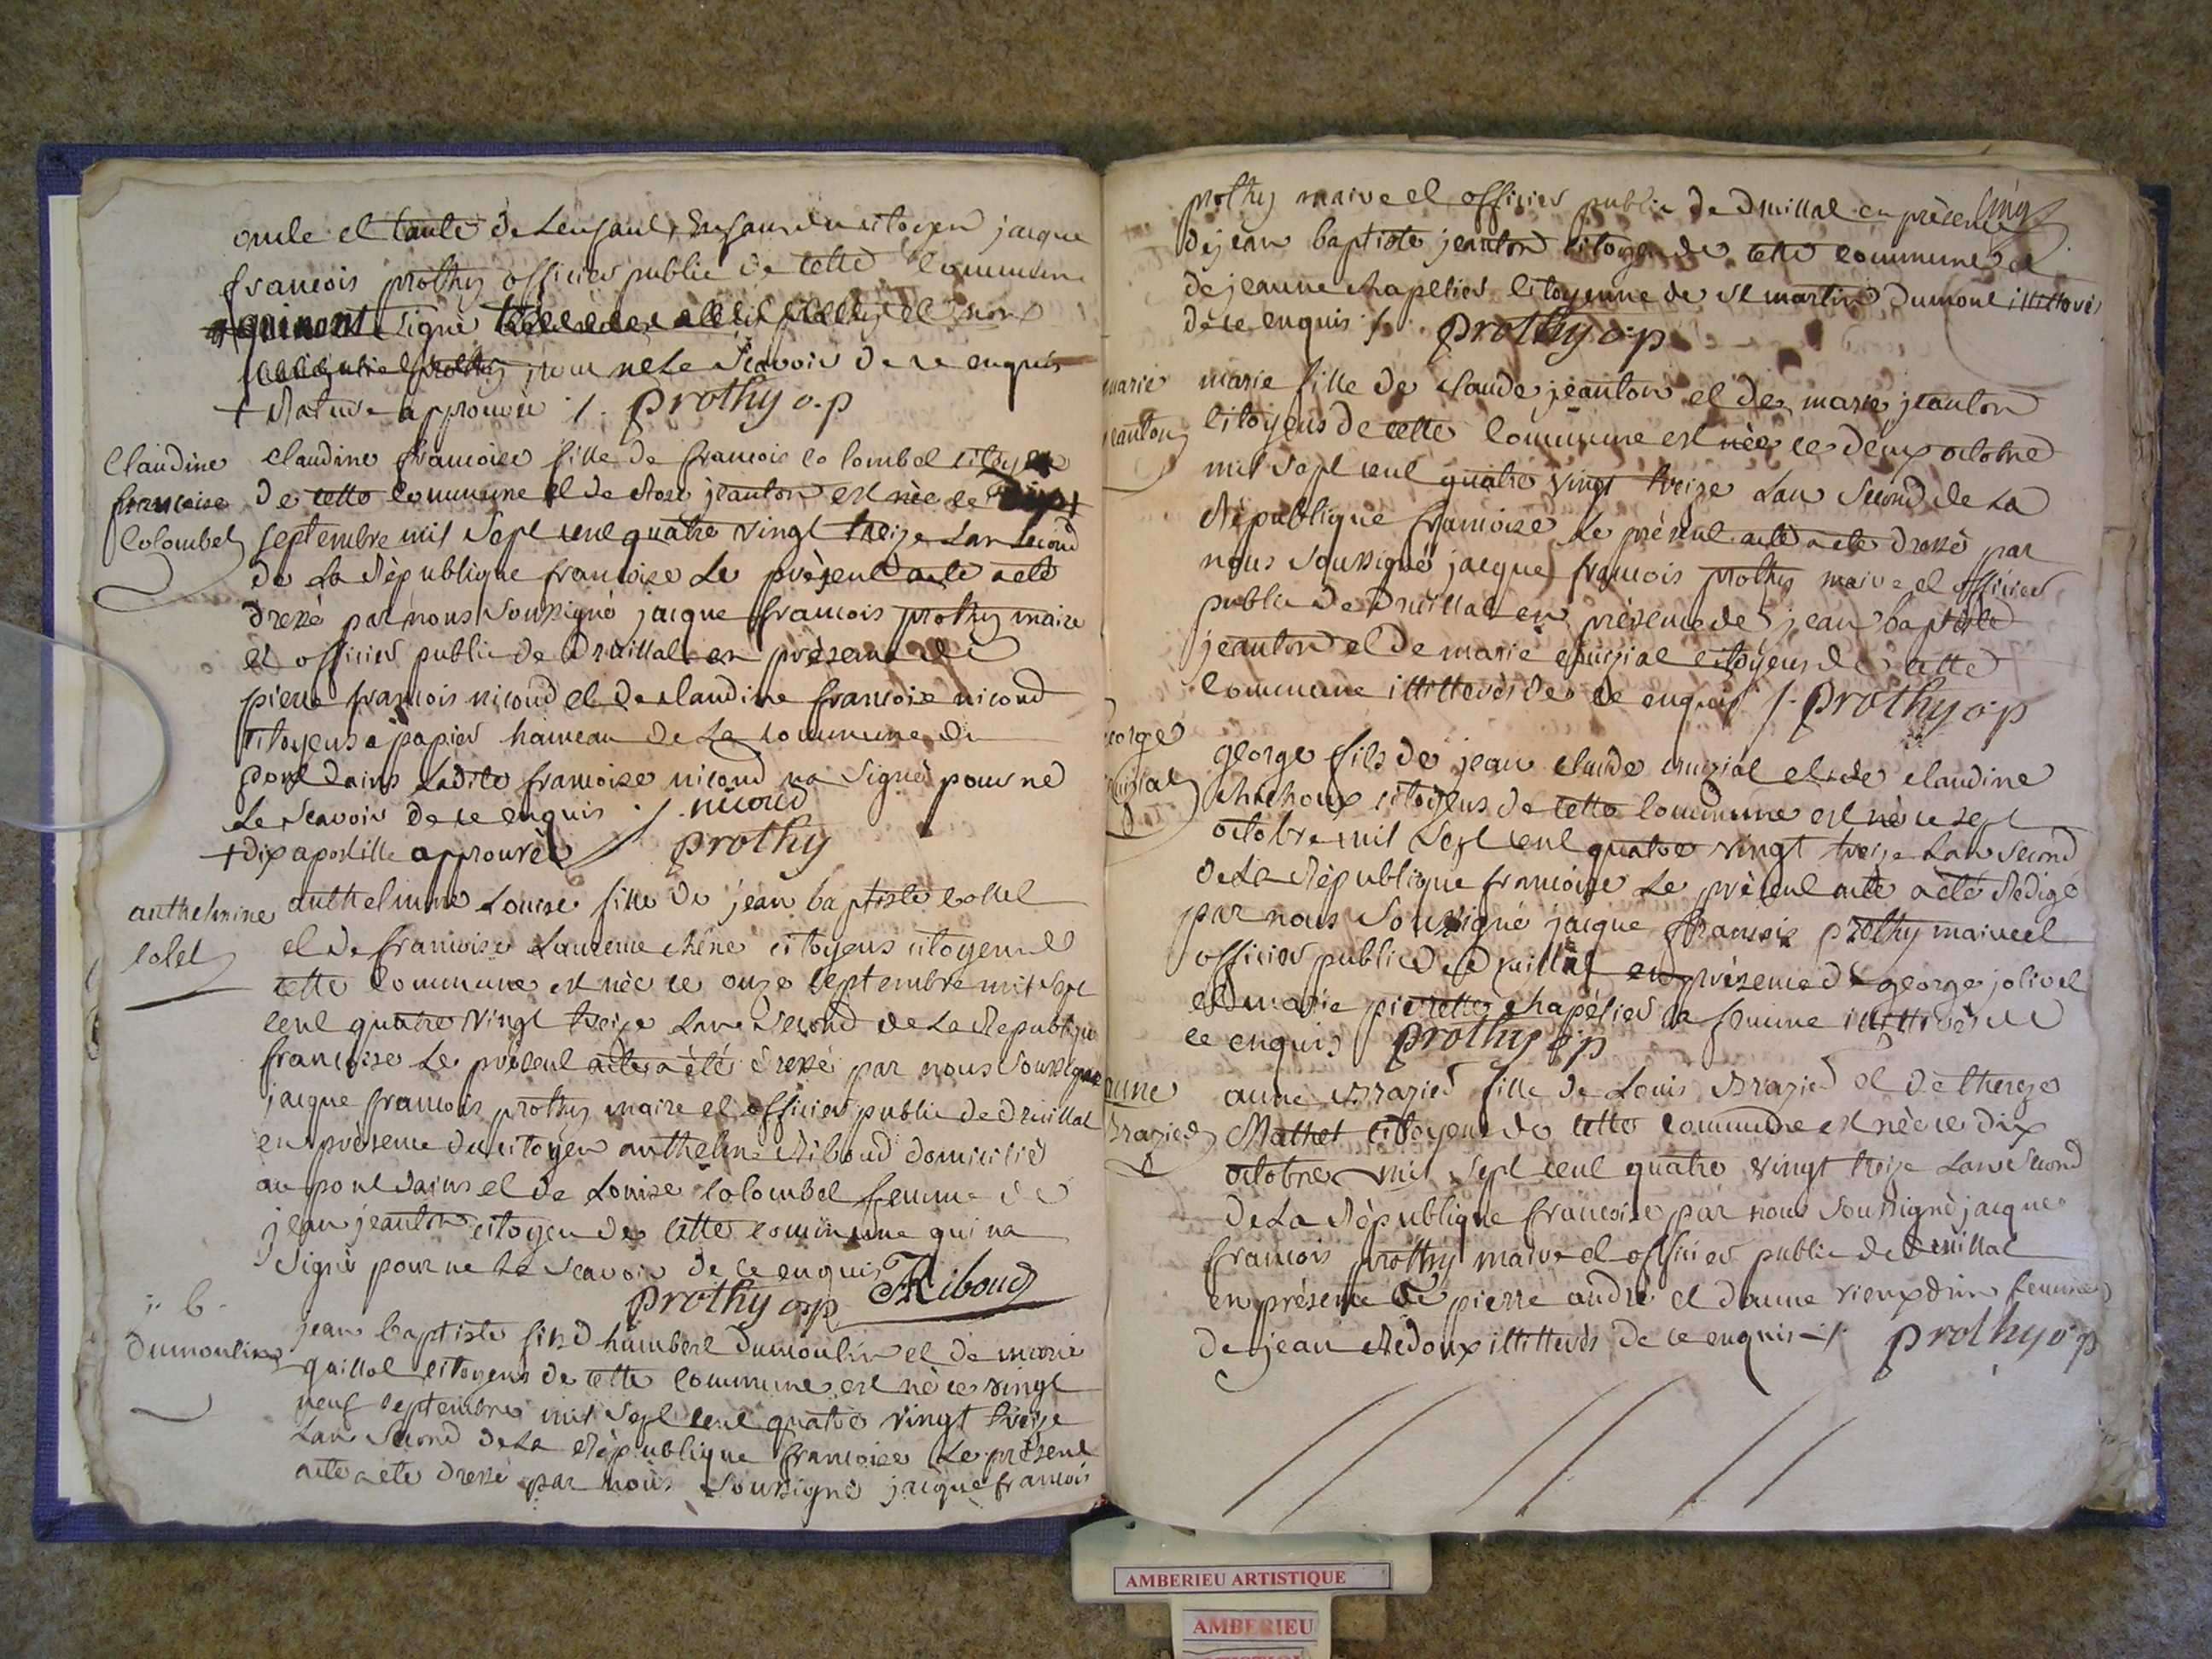 oncle et tante de Lenfant, Enfan du citoyen jacque
francois prothy officier public de cette commune
quinont signé
pour ne Le scavoir de ce enquis
+ Rature approuvée ./. prothy o.p
Claudine
francoise
Colombet
claudine francoise fille de francois colombet citoyen
de cette commune et de Rose jeanton est née le +
septembre mil sept cent quatre vingt treize Lan second
de La République francoise Le présent acte a eté
dressé par nous soussigné jacque francois prothy maire
et officier public de Druillat en présence de
pierre francois nicoud et de claudine francoise nicoud
citoyens a papier hameau de La commune de
pont dains Ladite francoise nicoud na signé pour ne
Le scavoir de ce enquis ./. nicoud
+ dix apostille approuvée prothy
anthelmine
Colet
anthelmine Louise fille de jean baptiste collet
et de francoise Laurence chêne citoyens citoyenne
cette commune est née ce onze septembre mil sept
cent quatre vingt treize Lan second de La Republique
francoise Le présent acte a été dressé par nous soussigné
jacque francois prothy maire et officier public de druillat
en présence du citoyen anthelme Riboud domicilié
au pont dains et de Louise colombet femme de
jean jeanton citoyen de cette commune qui na
signé pour ne Le scavoir de ce enquis Riboud
prothy o.p
j. b.
dumoulin
jean baptiste fils d humbert dumoulin et de marie
guillot citoyens de cette commune est né ce vingt
neuf septembre mil sept cent quatre vingt treize
Lan second de La République francoise Le présent
acte a ete dressé par nous soussigné jacque francois
prothy maire et officier public de druillat en présence
cinq
de jean baptiste jeanton citoyen de cette commune et
de jeanne chapelier citoyenne de st martin dumont illittovés
de ce enquis ./. prothy o.p
marie
jeanton
marie fille de claude jeanton et de marie jeanton
citoyens de cette commune est née ce deux octobre
mil sept cent quatre vingt treize Lan second de La
République francoise Le présent acte a ete dressé par
nous soussigné jacque francois prothy maire et officier
public de Druillat en présence de jean baptiste
jeanton et de marie cruizial citoyens de cette
commune illittevés de ce enquis ./. prothy o.p
george
cruizial
george fils de jean claude cruizial et de claudine
chachoux citoyens de cette commune est né ce sept
octobre mil sept cent quatre vingt treize Lan second
de La République francoise Le présent acte a été Rédigé
par nous soussigné jacque francois prothy maire et
officier public de druillat en présence de george jolivet
et marie pierrette chapelier sa femme illittivés de
ce enquis prothy o.p
anne
Brazied
anne Brazied fille de Louis Brazied et de thereze
Mathet citoyens de cette commune est née ce dix
octobre mil sept cent quatre vingt treize Lan second
de La République francoise par nous soussigné jacque
francois prothy maire et officier public de druillat
en présence de pierre andré et danne vieuxdrin femme
de jean Redoux illittevés de ce enquis ./. prothy o.p
AMBERIEU ARTISTIQUE
AMBERIEU